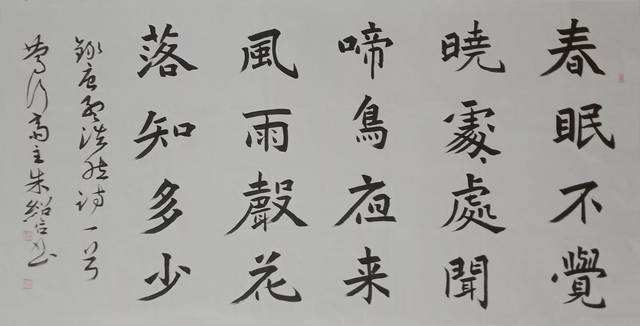 春眠不覺
曉處處聞
啼鳥夜来
風雨聲花
落知多少
錄唐孟浩然詩一首
斋主朱紹书